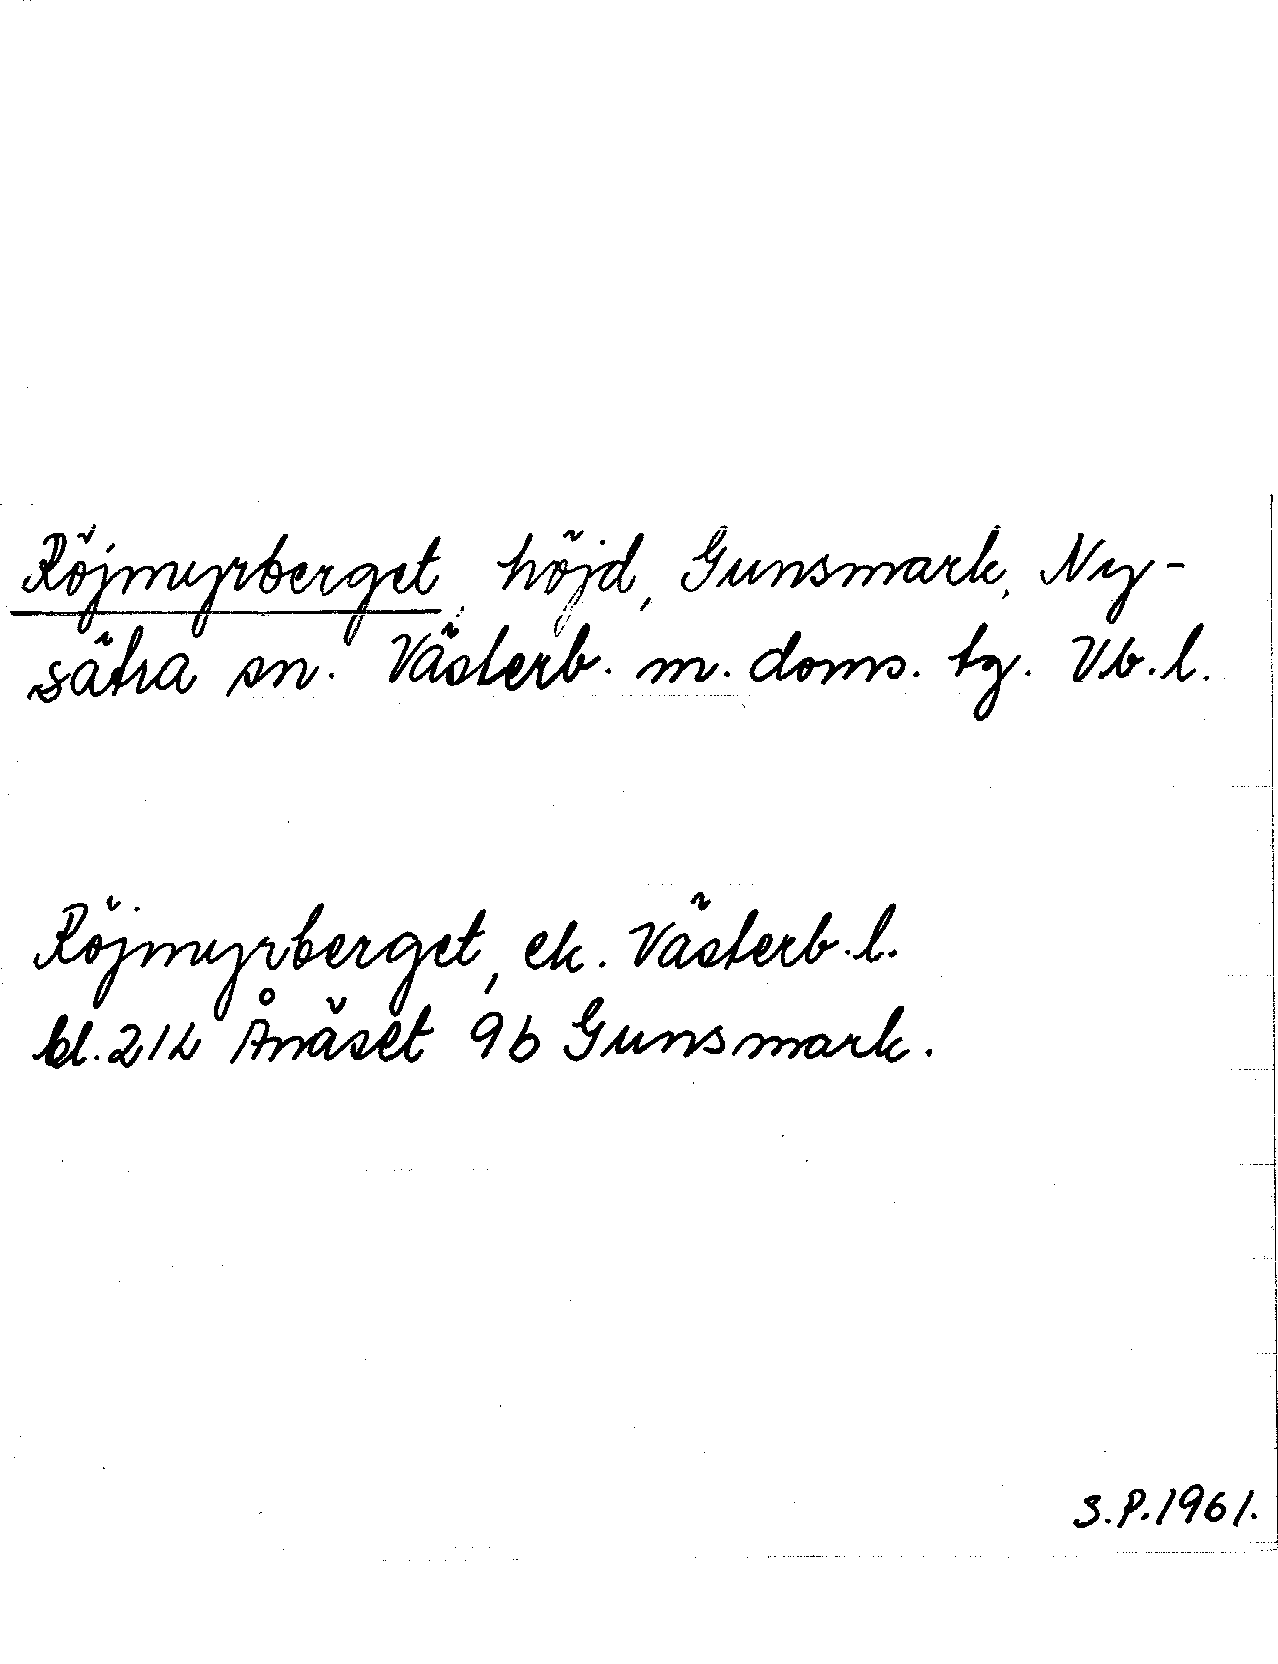 Röjmyrberget, höjd, Gunsmark, Ny-
sätra sn. Västerb. m. doms. tg. Vb.l.
Röjmyrberget, ek. Västerb.l.
bl. 21L Ånäset 9b Gunsmark.
S.P.1961.